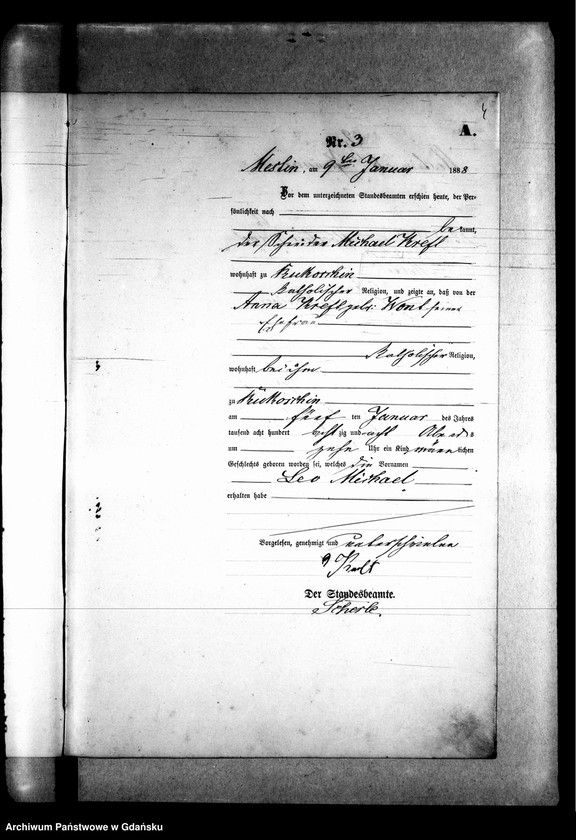 4
A.
Nr. 3
Meslin, am 9ten Januar 1888
Vor dem unterzeichneten Standesbeamten erschien heute, der Per-
sönlichkeit nach
be kannt,
der Michael Kreft
wohnhaft zu Rukoschin
katholischer Religion, und zeigte an, daß von der
Anna Kreft geb: Wont seiner
Ehefrau
katholischer Religion,
wohnhaft bei ihm
zu Rukoschin
am fünf ten Januar des Jahres
tausend acht hundert acht zig und acht Abends
um zehn Uhr ein Kind männ lichen
Geschlechts geboren worden sei, welches die Vornamen
Leo Michael
erhalten habe
Vorgelesen, genehmigt und unterschrieben
Kreft
Der Standesbeamte.
Archiwum Państwowe w Gdańsku